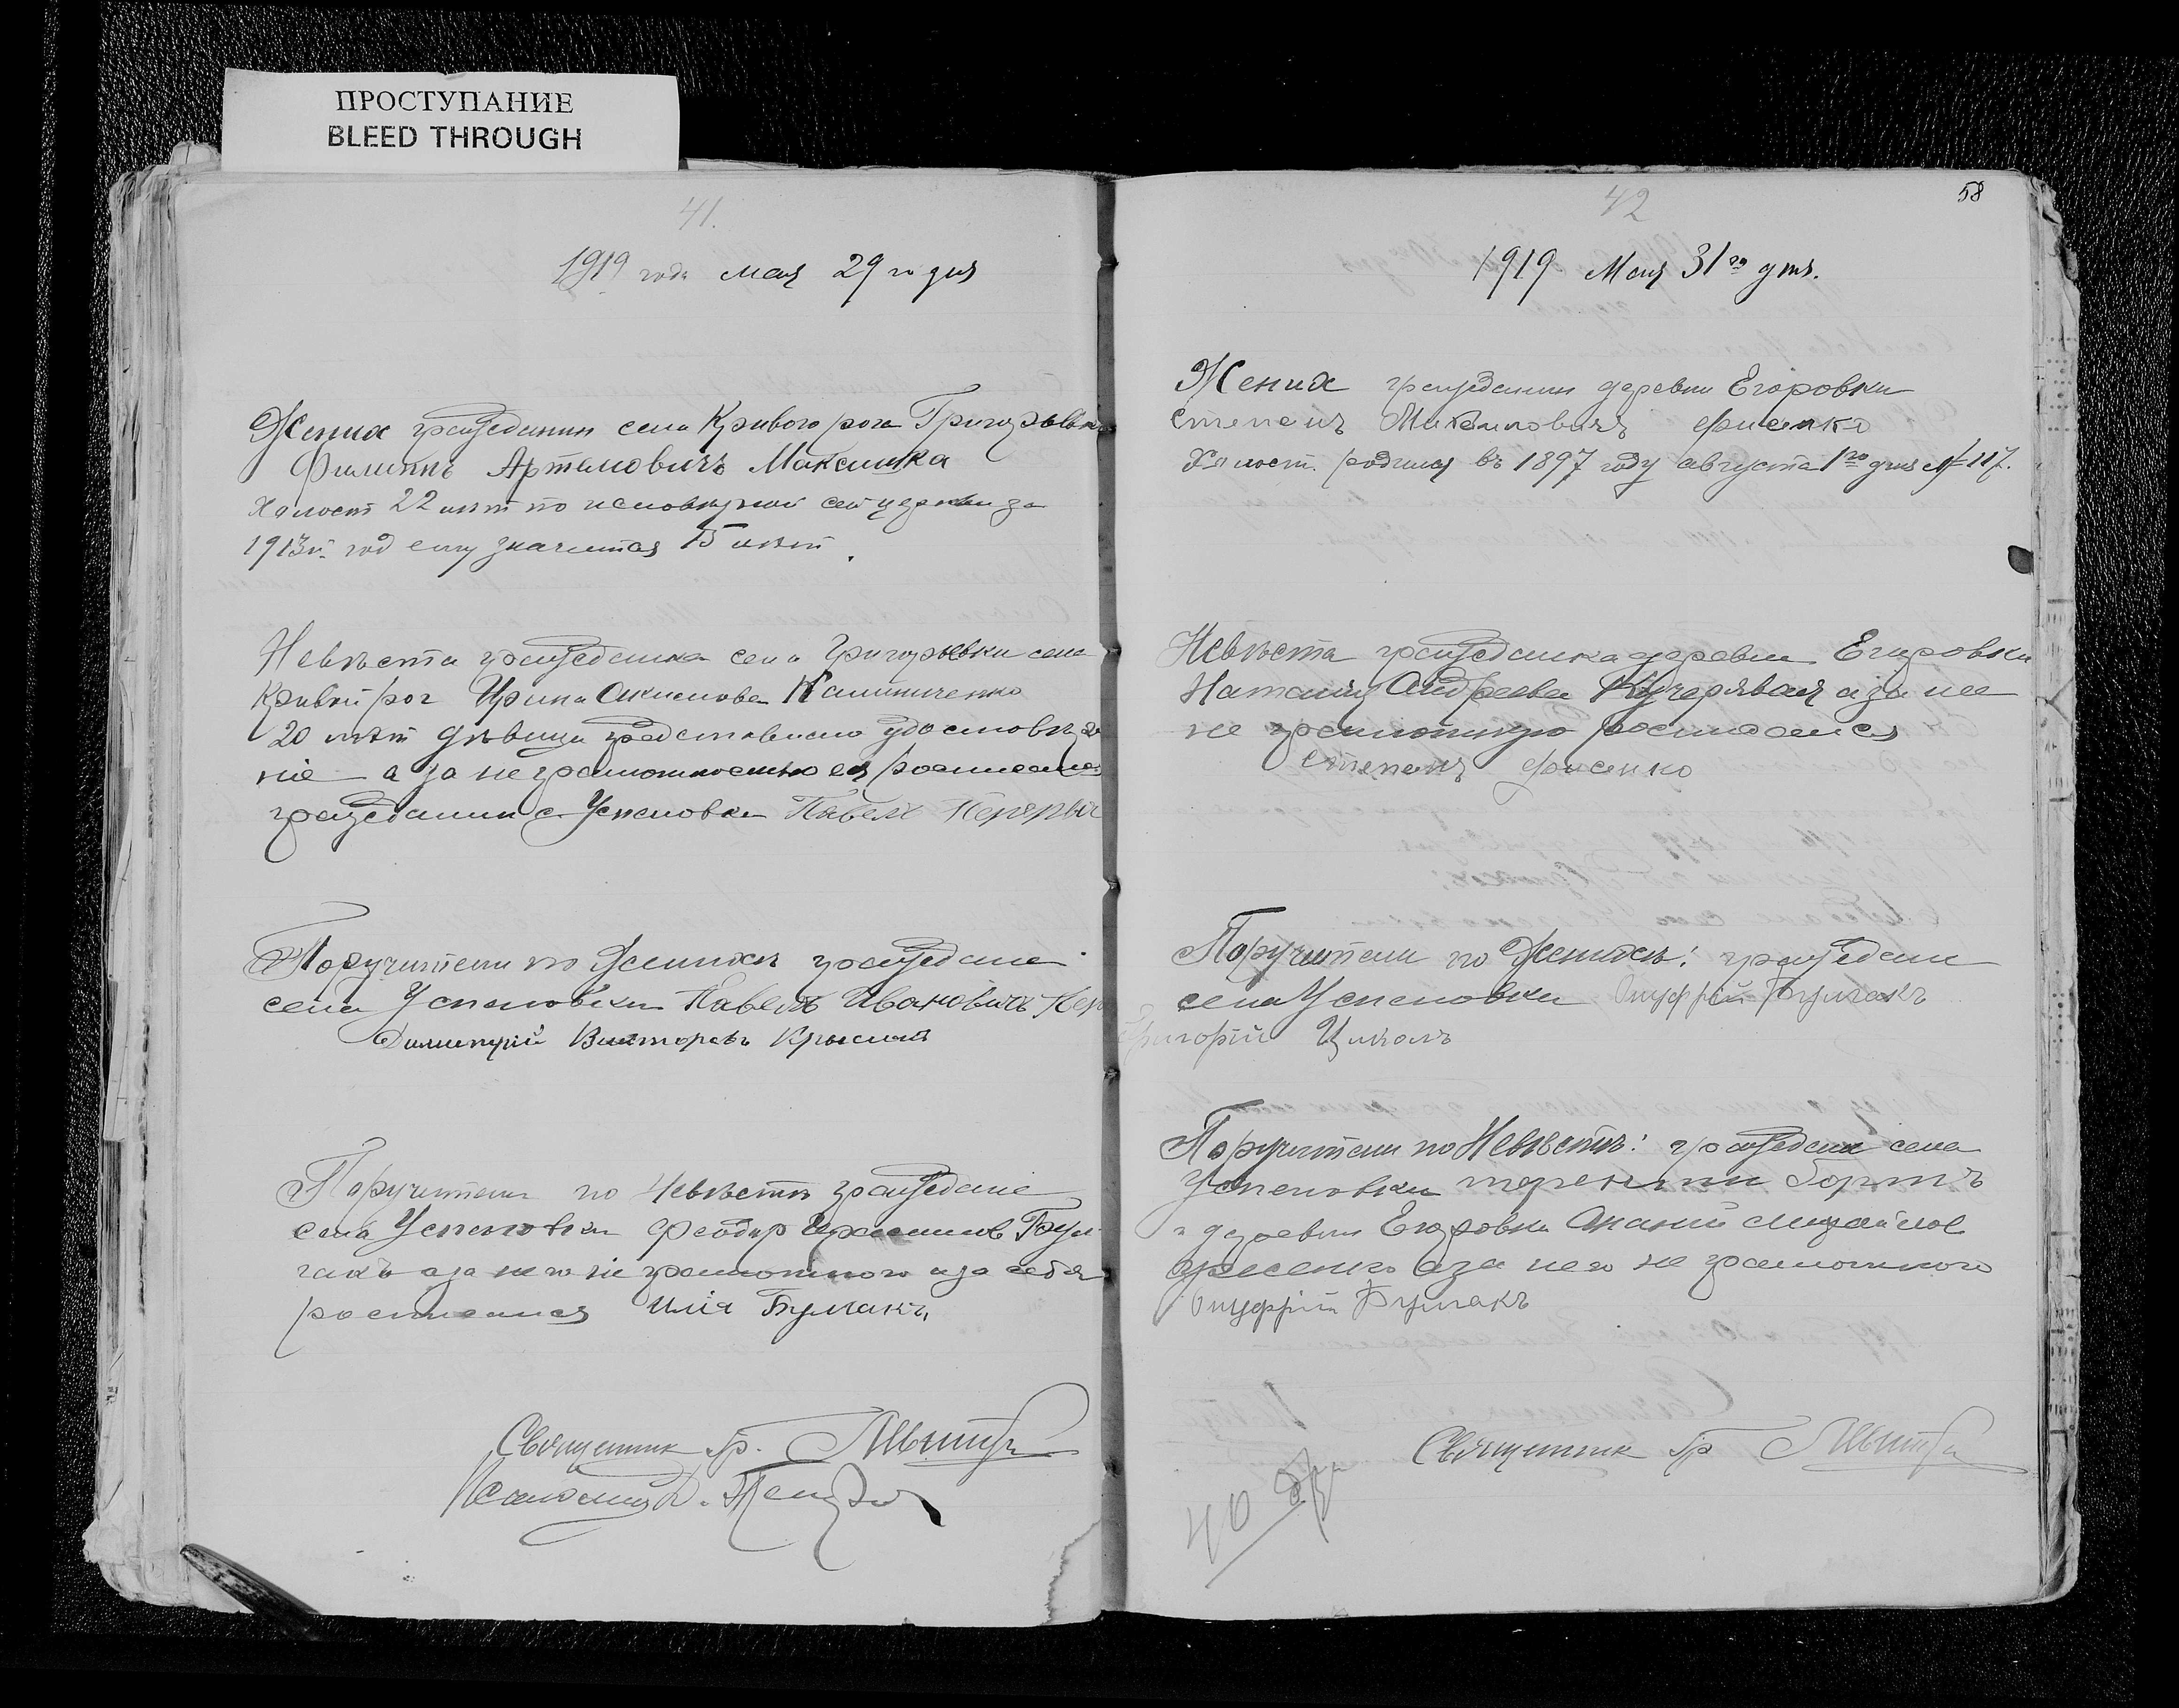 ПРОСТУПАНИЕ
BLEED THROUGH
41.
1919 года мая 29 го дня
Жених гражданин села Кривого рога Григорьевки
Филиппъ Артемовичъ Максимка
Холост 22 лѣт по исповѣдной сей церкви за
1913й год ему значится 15 лѣт.
Невѣста гражданка села Григорьевки села
Кривой рог Ирина Акимова Калиниченко
20 лѣт дѣвица представлено удостовѣре
ніе а за неграмотностью ея росписался
гражданин с Успеновки Павелъ
Поручители по Женихѣ граждане
села Успеновки Павелъ Ивановичъ
Димитрій Викторовъ
Поручители по Невѣстѣ граждане
села Успеновки Феодор Бул
гакъ а за него не грамотного и за себя
росписался Илія Булгакъ
Священник Гр.
Псаломщ
42
58
1919 Мая 31го дня.
Жених гражданин деревни Егоровки
Степанъ Михаиловичъ Фисенко
Холост. родился въ 1897 году августа 1го дня № 117.
Невѣста гражданка деревни Егоровки
Наталия Андреева Кучерявая а за нее
не грамотную росписался
Степанъ Фисенко
Поручители по Женихѣ: граждане
села Успеновки Онуфрій Булгакъ
Григорій
Поручители по Невѣстѣ: граждане села
Успеновки терентий
и деревни Егоровки
Фисенко а за него не грамотного
Онуфрій Булгакъ
Священник Гр
40